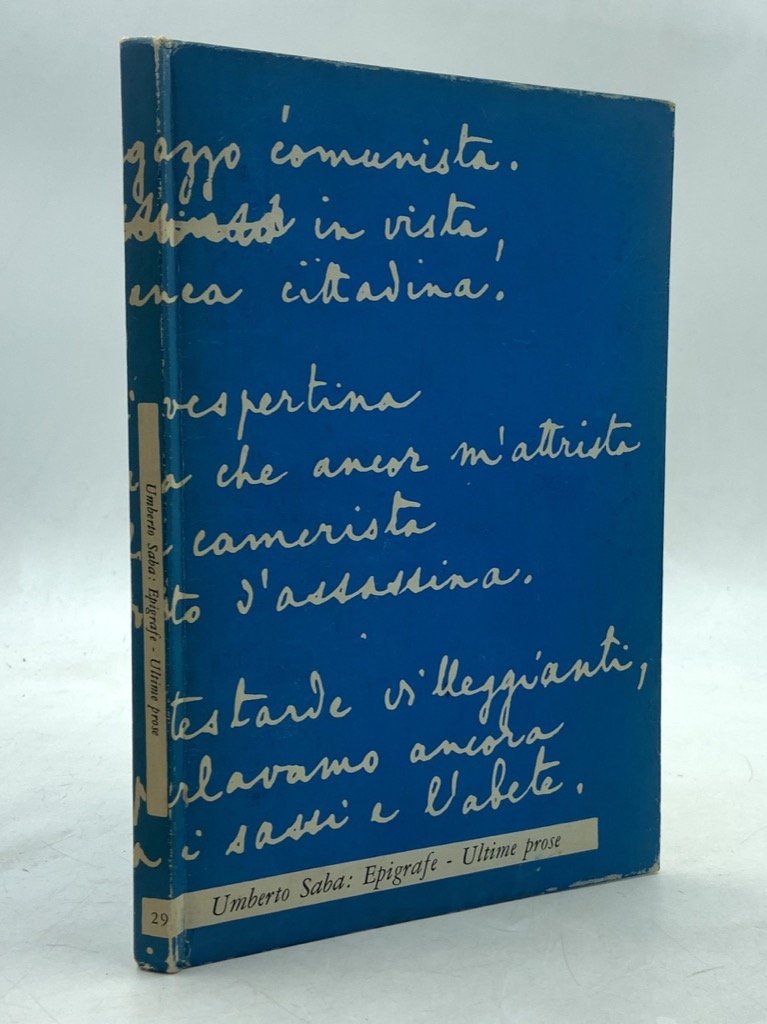 gazzo comunista.
in vista,
anca cittadina.
vespertina
a che ancor m'attrista
camerista
to d'assassina.
testarde villeggianti,
parlavamo ancora
a i sassi e l'abete.
Umberto Saba: Epigrafe - Ultime prose
Umberto Saba: Epigrafe - Ultime prose
29